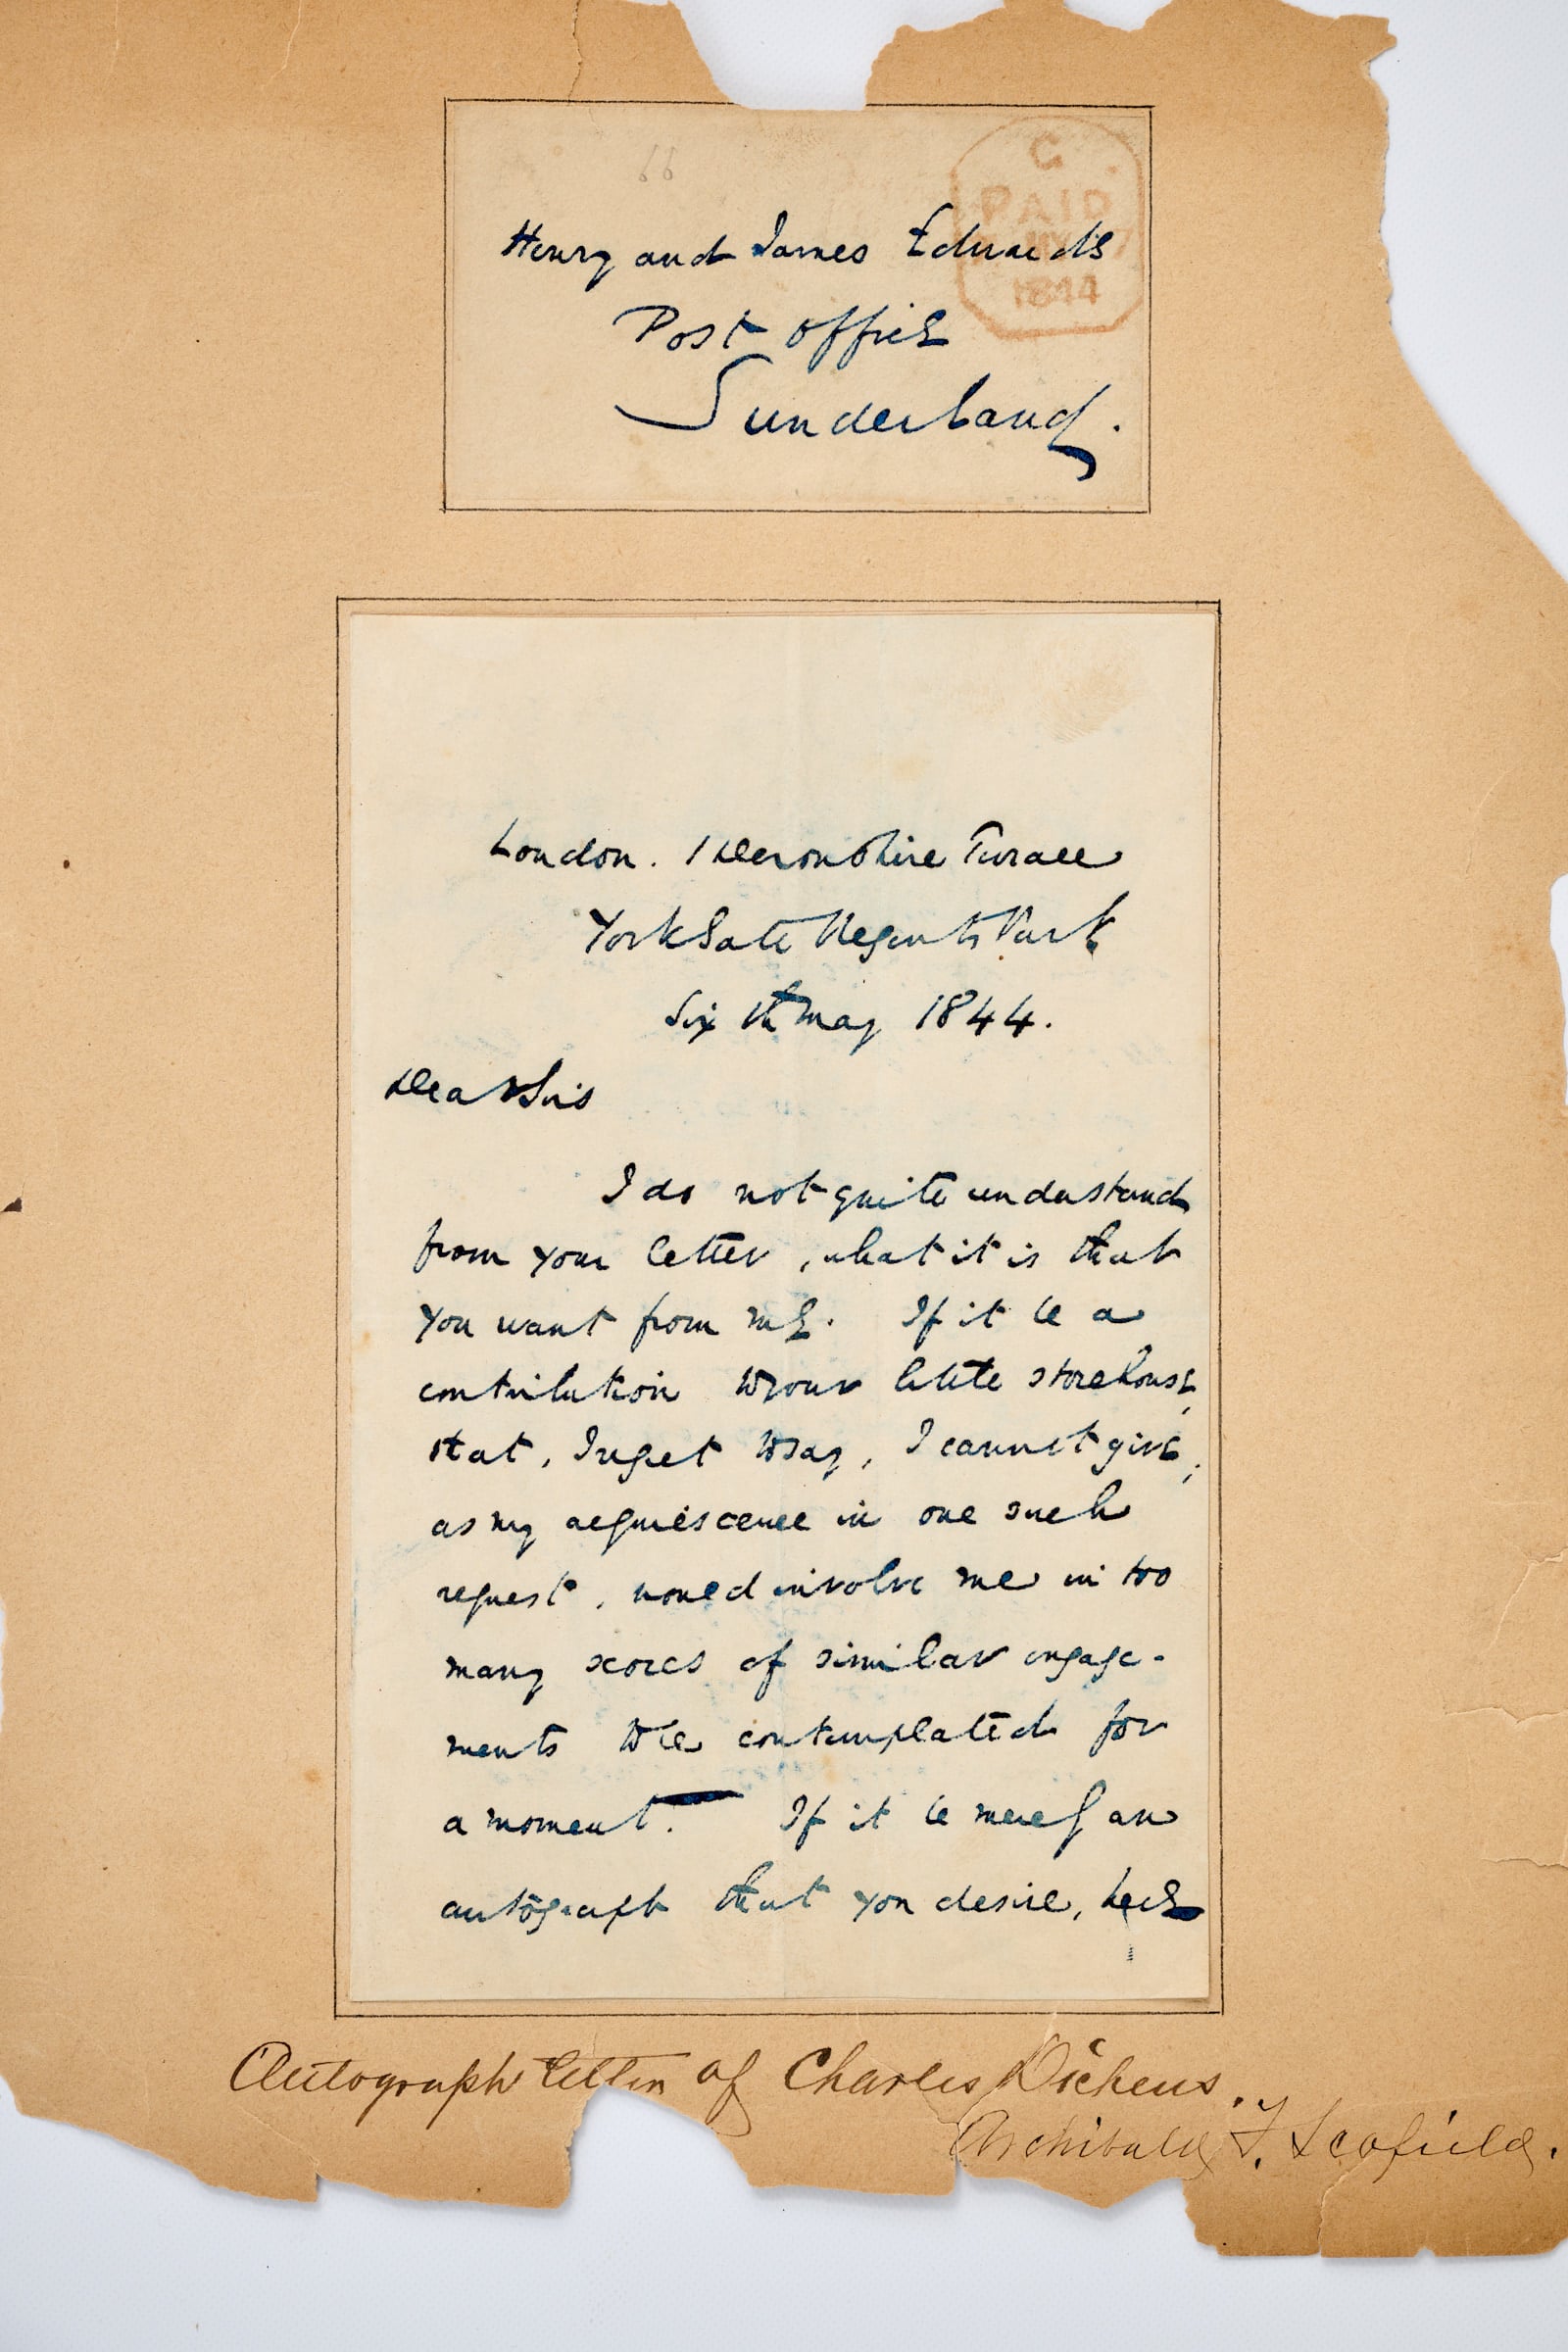 66
C
PAID
1844
Henry and James Edwards
Post Office
Sunderland.
London. 1 Devonshire Terrace
York Gate Regents Park
Sixth May 1844.
Dear Sirs
I do not quite understand
from your letter, what it is that
you want from me. If it be a
contribution to your little storehouse,
that, I regret to say, I cannot give;
as my acquiescence in one such
request, would involve me in too
many scores of similar engage-
ments to be contemplated for
a moment. If it be merely an
autograph that you desire, here
Autograph letter of Charles Dickens.
Archibald F. Scofield.